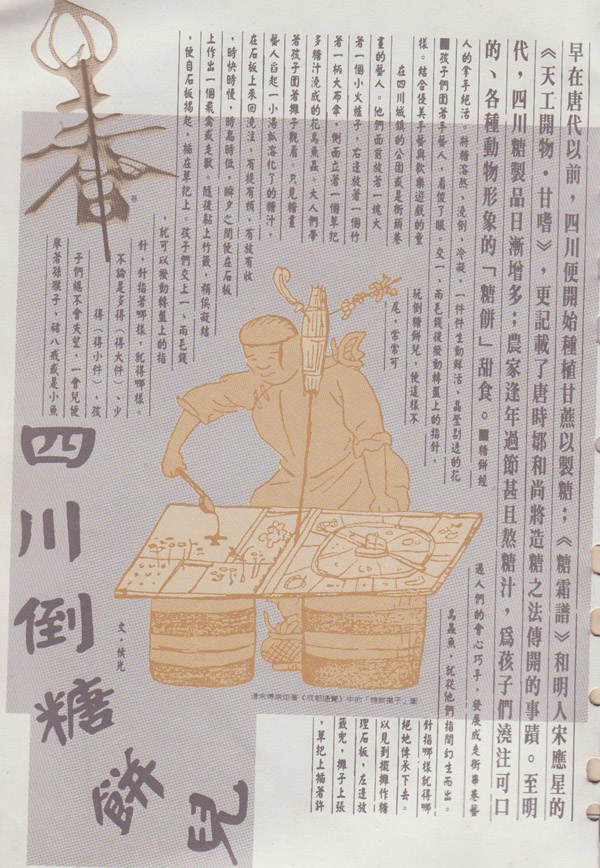 早在唐代以前，四川便開始種植甘蔗以製糖；《糖霜譜》和明人宋應星的
《天工開物．甘嗜》，更記載了唐時鄒和尚將造糖之法傳開的事蹟。至明
代，四川糖製品日漸增多；農家逢年過節甚且熬糖汁，為孩子們澆注可口
的、各種動物形象的「糖餅」甜食。■糖餅經
過人們的會心巧手，發展成走街串巷藝
人的拿手絕活。將糖溶熬、澆倒、冷凝，一件件生動鮮活、晶瑩剔透的花
鳥蟲魚，就從他們指間幻生而出。
■孩子們圍著手藝人，看傻了眼。交一、兩毛錢後撥動轉盤上的指針，
針指哪樣就得哪
樣。結合優美手藝與歡樂遊戲的童
玩倒糖餅兒，便這樣不
絕地傳承下去。
在四川城鎮的公園或是街頭巷
尾，常常可
以見到擺攤作糖
畫的藝人。他們面前放著一塊大
理石板，左邊放
著一個小火爐子，右邊放著一個竹
籤兜，攤子上張
著一柄大布傘，側面立著一個草把
，草把上插著許
多糖汁澆成的花鳥魚蟲。大人們帶
著孩子圍著攤子觀看。只見糖畫
藝人舀起一小湯瓢溶化了的糖汁，
在石板上來回澆注，有提有頓，有放有收
，時快時慢，時高時低，瞬夕之間便在石板
上作出一個飛禽或走獸。隨後黏上竹籤，稍俟凝結
，便自石板揭起，插在草把上。孩子們交上一、兩毛錢
，就可以撥動轉盤上的指
針，針指著哪樣，就得哪樣。
不論是多得（得大件）、少
得（得小件），孩
子們總不會失望，一會兒便
舉著孫猴子、豬八戒或是小魚
四川倒糖餅兒
文・候光
清末傅崇矩著《成都通覽》中的「糖餅攤子」圖